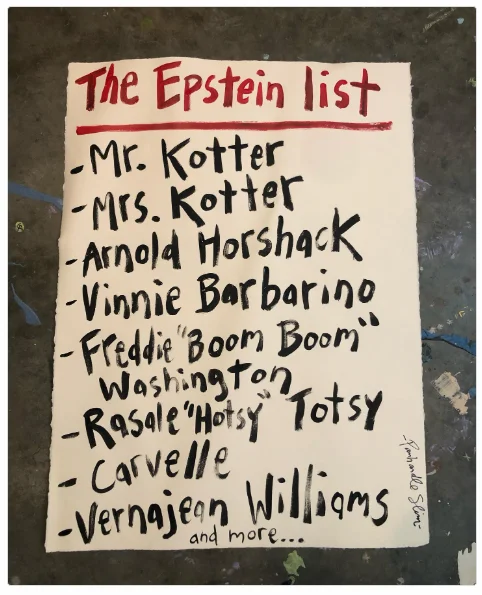 The Epstein list
-Mr. Kotter
-Mrs. Kotter
-Arnold Horshack
-Vinnie Barbarino
-Freddie "Boom Boom"
Washington
-Rasale "Hotsy" Totsy
-Carvelle
-Vernajean Williams
and more...
-Panhandle Slim-